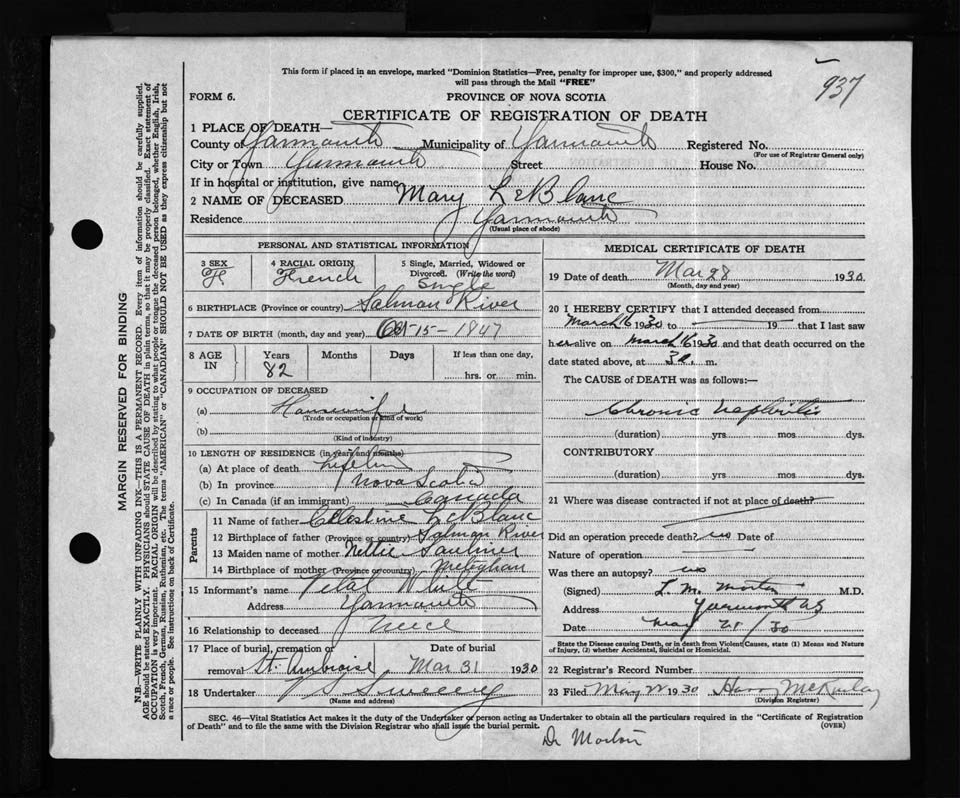 937
This form if placed in an envelope, marked "Dominion Statistics—Free, penalty for improper use, $300," and properly addressed
will pass through the Mail "FREE"
FORM 6.
PROVINCE OF NOVA SCOTIA
CERTIFICATE OF REGISTRATION OF DEATH
1 PLACE OF DEATH—
County of Yarmouth Municipality of Yarmouth Registered No.
(For use of Registrar General only)
City or Town Yarmouth Street House No.
If in hospital or institution, give name
2 NAME OF DECEASED Mary LeBlanc
Residence Yarmouth
(Usual place of abode)
PERSONAL AND STATISTICAL INFORMATION
3 SEX 4 RACIAL ORIGIN 5 Single, Married, Widowed or
Divorced. (Write the word)
F French Single
6 BIRTHPLACE (Province or country) Salman River
7 DATE OF BIRTH (month, day and year) -15-1847
8 AGE IN Years Months Days If less than one day,
82 hrs. or min.
9 OCCUPATION OF DECEASED
(a) Housewife
(Trade or occupation or kind of work)
(b)
(Kind of industry)
10 LENGTH OF RESIDENCE (in years and months)
(a) At place of death
(b) In province Nova Scotia
(c) In Canada (if an immigrant) Canada
Parents
11 Name of father Celestine LeBlanc
12 Birthplace of father (Province or country) Salman River
13 Maiden name of mother Nettie Saulnier
14 Birthplace of mother (Province or country) Meteghan
15 Informant's name Vital White
Address Yarmouth
16 Relationship to deceased Neice
17 Place of burial, cremation or Date of burial
removal St. Ambroise Mar 31 1930
18 Undertaker V S Sweeney
(Name and address)
MEDICAL CERTIFICATE OF DEATH
19 Date of death Mar 28 1930.
(Month, day and year)
20 I HEREBY CERTIFY that I attended deceased from
March 16 1930 to 19 that I last saw
her alive on March 16 1930 and that death occurred on the
date stated above, at 3 a. m.
The CAUSE of DEATH was as follows:—
Chronic Nephritis
(duration) yrs mos dys.
CONTRIBUTORY
(duration) yrs. mos. dys.
21 Where was disease contracted if not at place of death?
Did an operation precede death? no Date of
Nature of operation
Was there an autopsy? no
(Signed) L. M. Morton M.D.
Address Yarmouth NS
Date May 21/30
State the Disease causing Death, or in death from Violent Causes, state (1) Means and Nature
of Injury, (2) whether Accidental, Suicidal or Homicidal.
22 Registrar's Record Number
23 Filed May 1930 Harry McKinlay
(Division Registrar)
SEC. 46—Vital Statistics Act makes it the duty of the Undertaker or person acting as Undertaker to obtain all the particulars required in the "Certificate of Registration
of Death" and to file the same with the Division Registrar who shall issue the burial permit. (OVER)
Dr Morton
MARGIN RESERVED FOR BINDING
N.B.—WRITE PLAINLY WITH UNFADING INK—THIS IS A PERMANENT RECORD. Every item of information should be carefully supplied.
AGE should be stated EXACTLY. PHYSICIANS should STATE CAUSE OF DEATH in plain terms, so that it may be properly classified. Exact statement of
OCCUPATION is very important. RACIAL ORIGIN will be described by stating to what people or tongue the deceased person belonged, whether English, Irish,
Scotch, French, German, Russian, Ruthenian, etc. The terms "AMERICAN" or "CANADIAN" SHOULD NOT BE USED as they express citizenship but not
a race or people. See instructions on back of Certificate.